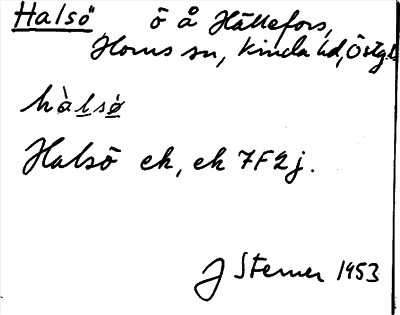 Halsö ö å Hällefors,
Horns sn, Kinda hd, Östgl.
hàlsø
Halsö ek, ek 7F2j.
J Sterner 1953